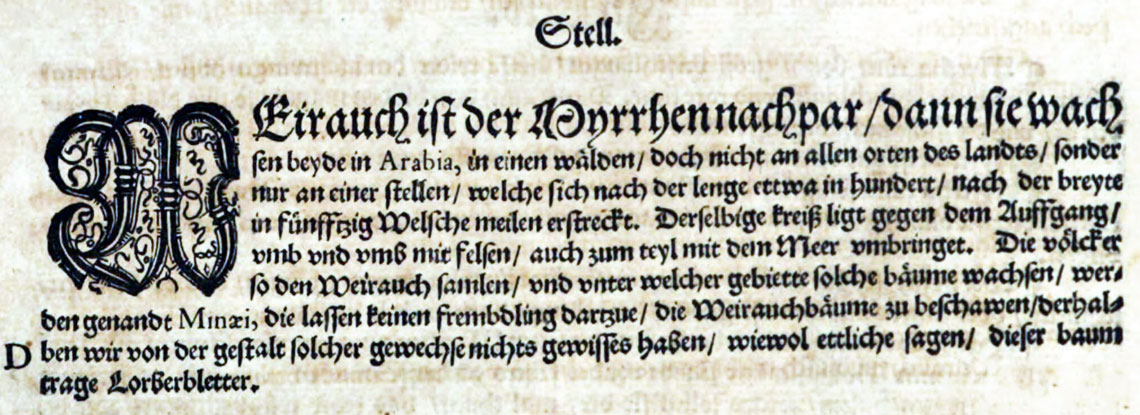 Stell.
WEirauch ist der Myrrhen nachpar/dann sie wach
sen beyde in Arabia, in einen wälden/ doch nicht an allen orten des landts/ sonder
nur an einer stellen/ welche sich nach der lenge ettwa in hundert/ nach der breyte
in fünfftzig Welsche meilen erstreckt. Derselbige kreiß ligt gegen dem Auffgang/
vmb vnd vmb mit felsen/ auch zum teyl mit dem Meer vmbringet. Die völcker
so den Weirauch samlen/ vnd vnter welcher gebiette solche bäume wachsen/ wer-
den genandt Minæi, die lassen keinen frembdling dartzue/ die Weirauchbäume zu beschawen/derhal-
D ben wir von der gestalt solcher gewechse nichts gewisses haben/ wiewol ettliche sagen/ dieser baum
trage Lorberbletter.